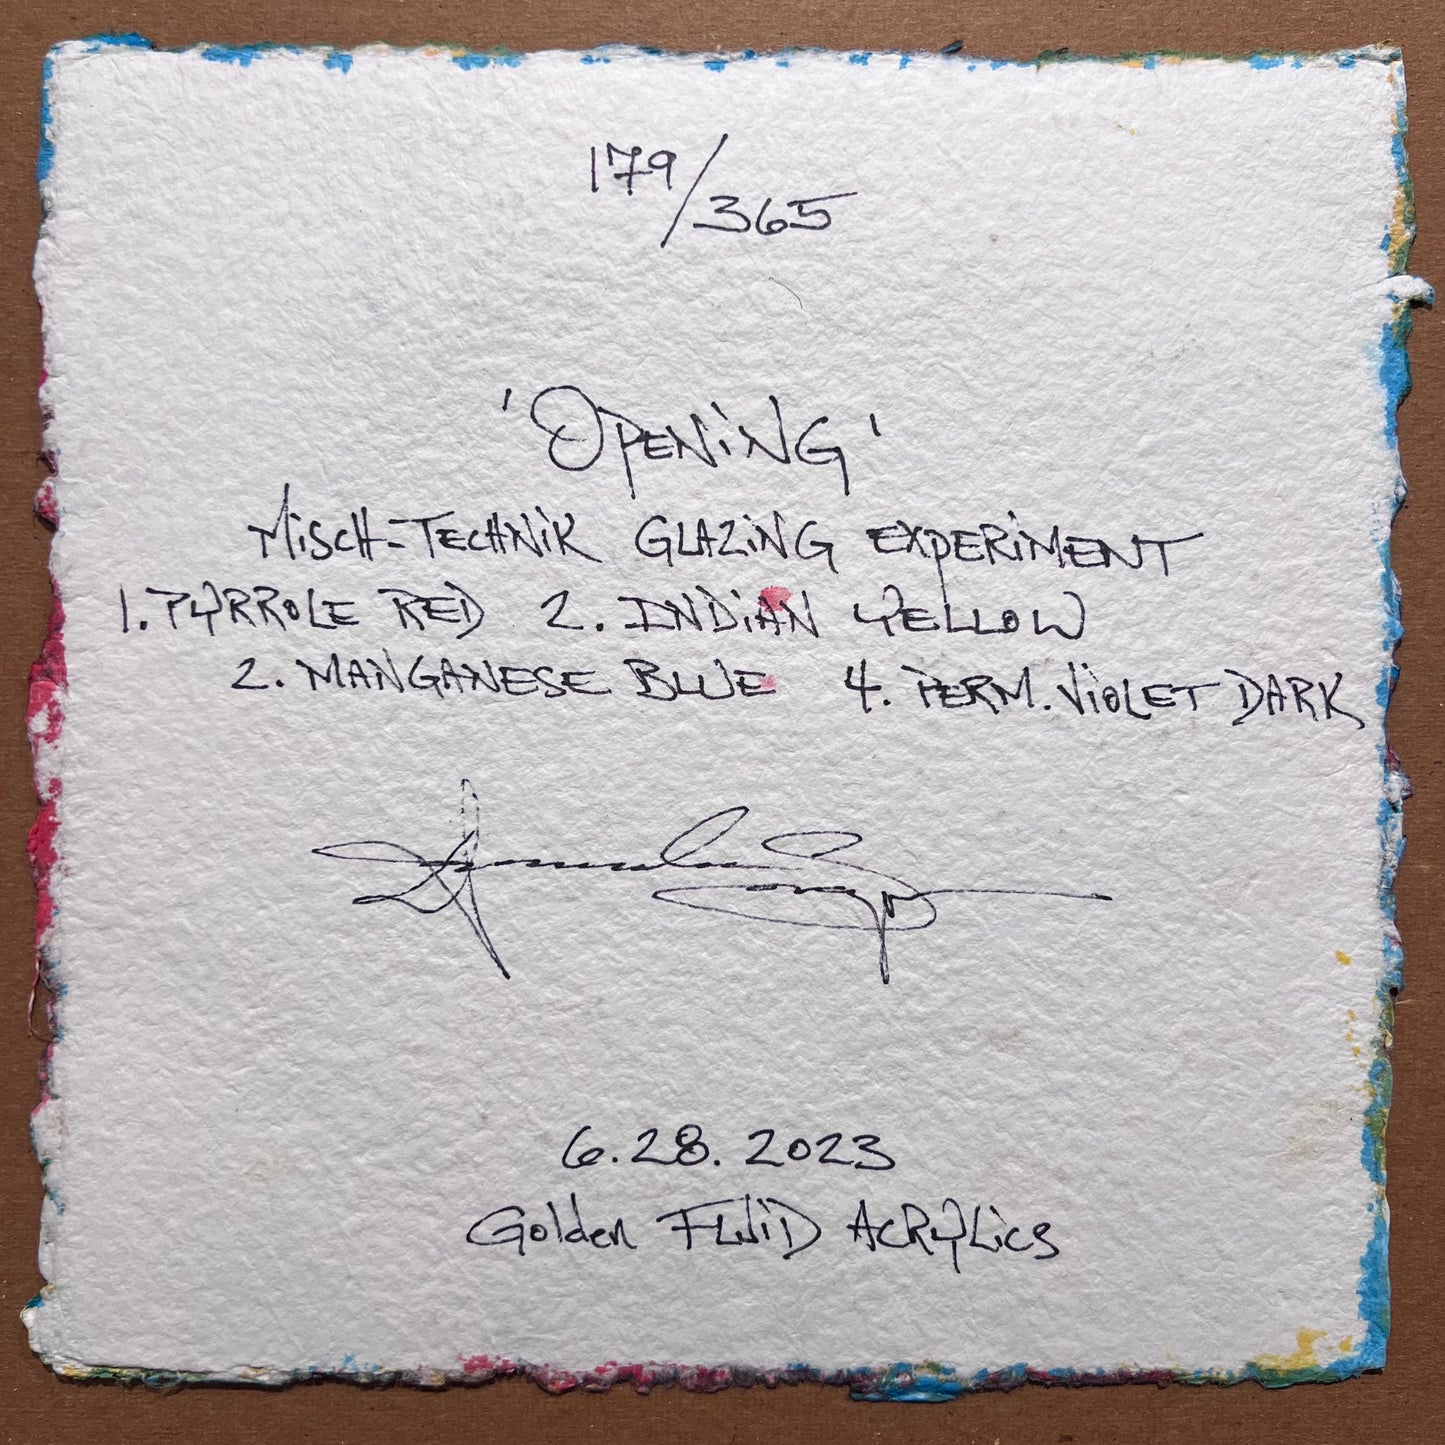 179/365
'Opening'
Misch-Technik Glazing Experiment
1. Pyrrole Red 2. Indian Yellow
2. Manganese Blue 4. Perm. Violet Dark
6.28.2023
Golden Fluid Acrylics